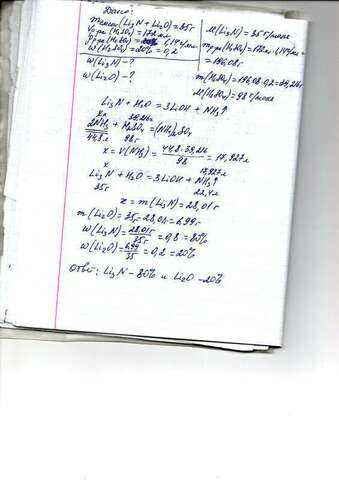 Дано:
m смеси (Li₃N + Li₂O) = 35г
V р-ра (H₂SO₄) = 172 мл
ρ р-ра (H₂SO₄) = 1,14 г/мл
w (H₂SO₄) = 20% = 0,2
w (Li₃N) - ?
w (Li₂O) - ?
M (Li₃N) = 35 г/моль
m р-ра (H₂SO₄) = 172 мл · 1,14 г/мл =
= 196,08 г
m (H₂SO₄) = 196,08 · 0,2 = 39,216г
M (H₂SO₄) = 98 г/моль
Li₃N + H₂O = 3LiOH + NH₃↑
xл 39,216г
2NH₃ + H₂SO₄ = (NH₄)₂SO₄
44,8 л 98 г
x = V(NH₃) = 44,8 · 39,216 / 98 = 17,927 л
x 17,927 л
Li₃N + H₂O = 3LiOH + NH₃↑
35г 22,4 л
x = m (Li₃N) = 28,01 г
m (Li₂O) = 35г - 28,01г = 6,99г
w (Li₃N) = 28,01г / 35г = 0,8 = 80%
w (Li₂O) = 6,99 / 35 = 0,2 = 20%
Ответ: Li₃N - 80% и Li₂O - 20%